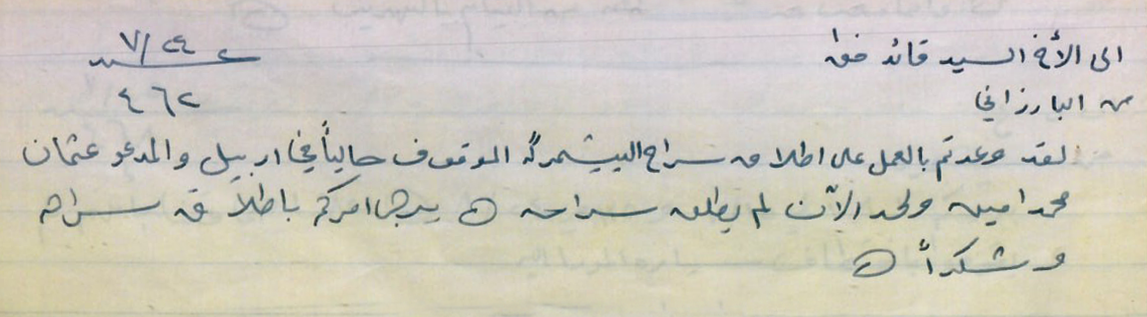 الى الأخ السيد قائد فق١
٧/٢٤
من البارزاني
٤٦٢
لقد وعدتم بالعمل على اطلاق سراح البيشمرگه الموقوف حالياً في اربيل والمدعو عثمان
محمد امين ولحد الآن لم يطلق سراحه ٥ يرجى امركم باطلاق سراحه
وشكراً ٥